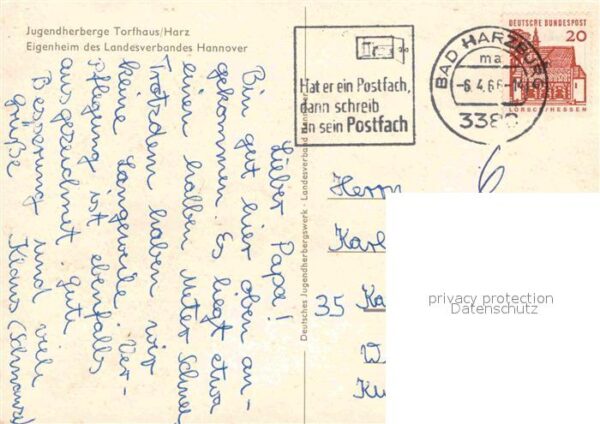 Jugendherberge Torfhaus/Harz
Eigenheim des Landesverbandes Hannover
Lieber Papa!
Bin gut hier oben an-
gekommen. Es liegt etwa
einen halben Meter Schnee
Trotzdem haben wir
keine Langeweile. Ver-
pflegung ist ebenfalls
ausgezeichnet. gute
Besserung und viele
grüße Klaus
Deutsches Jugendherbergswerk - Landesverband Hannover
Hat er ein Postfach,
dann schreib
an sein Postfach
BAD HARZBURG
ma
-6.4.66-
338
DEUTSCHE BUNDESPOST
20
LORSCH/HESSEN
Herrn
Karl
35 Ka
W
privacy protection
Datenschutz